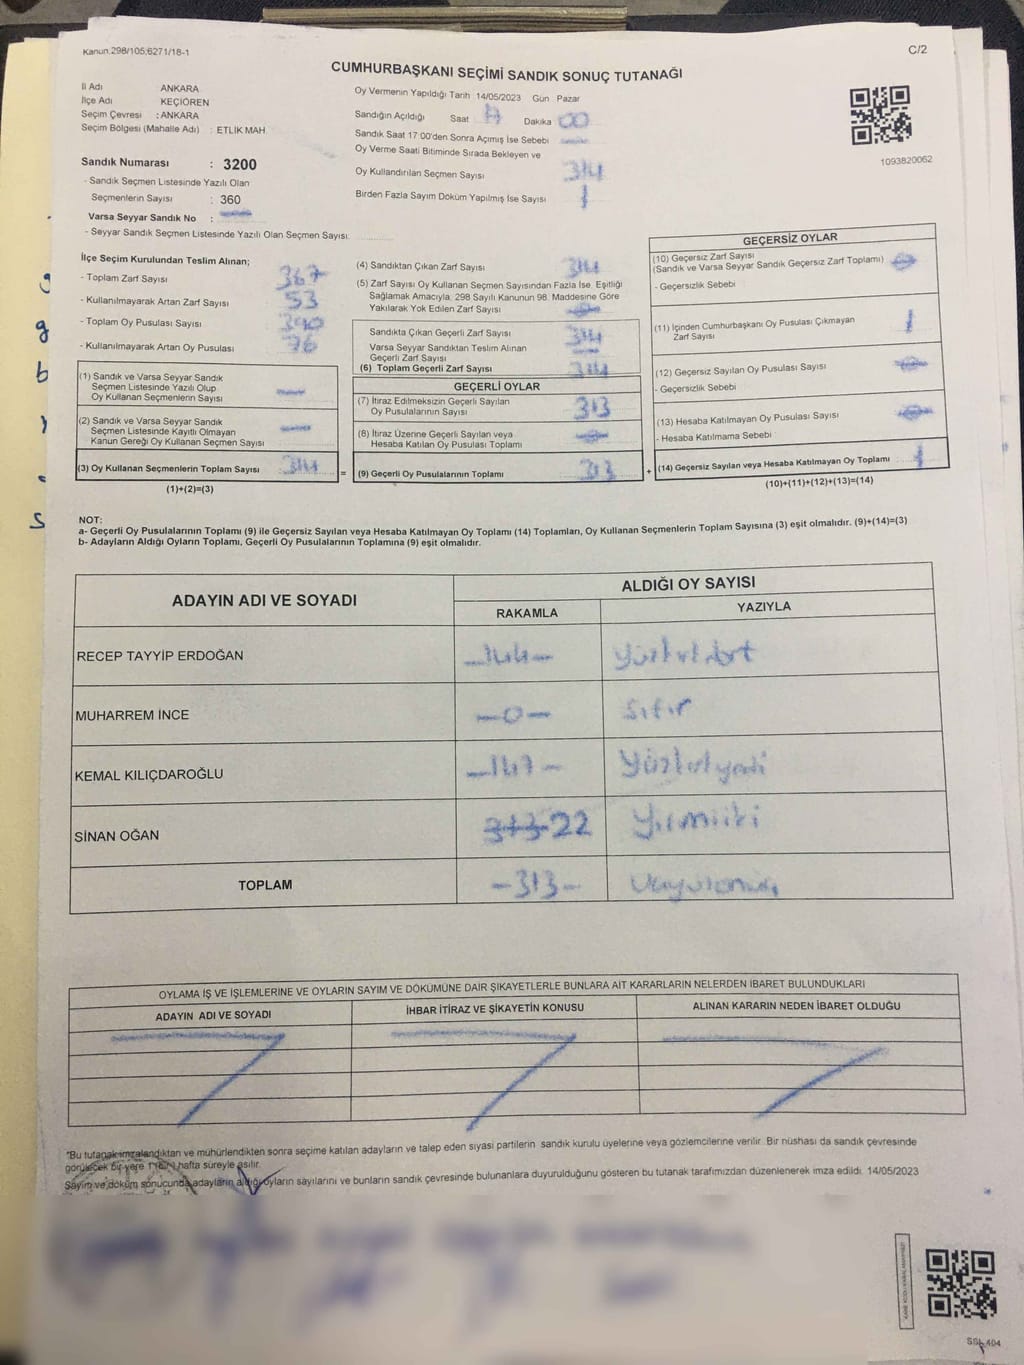 Kanun.298/105;6271/18-1
C/2
CUMHURBAŞKANI SEÇİMİ SANDIK SONUÇ TUTANAĞI
İl Adı ANKARA
İlçe Adı KEÇİÖREN
Seçim Çevresi : ANKARA
Seçim Bölgesi (Mahalle Adı) : ETLİK MAH.
Sandık Numarası : 3200
- Sandık Seçmen Listesinde Yazılı Olan
Seçmenlerin Sayısı : 360
Varsa Seyyar Sandık No :
- Seyyar Sandık Seçmen Listesinde Yazılı Olan Seçmen Sayısı:
Oy Vermenin Yapıldığı Tarih 14/05/2023 Gün Pazar
Sandığın Açıldığı Saat 17 Dakika 00
Sandık Saat 17:00'den Sonra Açımış İse Sebebi
Oy Verme Saati Bitiminde Sırada Bekleyen ve
Oy Kullandırılan Seçmen Sayısı 314
Birden Fazla Sayım Döküm Yapılmış İse Sayısı 1
1093820062
İlçe Seçim Kurulundan Teslim Alınan;
- Toplam Zarf Sayısı 367
- Kullanılmayarak Artan Zarf Sayısı 53
- Toplam Oy Pusulası Sayısı 390
- Kullanılmayarak Artan Oy Pusulası 76
(1) Sandık ve Varsa Seyyar Sandık
Seçmen Listesinde Yazılı Olup
Oy Kullanan Seçmenlerin Sayısı
(2) Sandık ve Varsa Seyyar Sandık
Seçmen Listesinde Kayıtlı Olmayan
Kanun Gereği Oy Kullanan Seçmen Sayısı
(3) Oy Kullanan Seçmenlerin Toplam Sayısı 314
(1)+(2)=(3)
=
(4) Sandıktan Çıkan Zarf Sayısı 314
(5) Zarf Sayısı Oy Kullanan Seçmen Sayısından Fazla İse, Eşitliği
Sağlamak Amacıyla, 298 Sayılı Kanunun 98. Maddesine Göre
Yakılarak Yok Edilen Zarf Sayısı
Sandıkta Çıkan Geçerli Zarf Sayısı 314
Varsa Seyyar Sandıktan Teslim Alınan
Geçerli Zarf Sayısı
(6) Toplam Geçerli Zarf Sayısı 314
GEÇERLİ OYLAR
(7) İtiraz Edilmeksizin Geçerli Sayılan
Oy Pusulalarının Sayısı 313
(8) İtiraz Üzerine Geçerli Sayılan veya
Hesaba Katılan Oy Pusulası Toplamı
(9) Geçerli Oy Pusulalarının Toplamı 313
+
GEÇERSİZ OYLAR
(10) Geçersiz Zarf Sayısı
(Sandık ve Varsa Seyyar Sandık Geçersiz Zarf Toplamı)
- Geçersizlik Sebebi
(11) İçinden Cumhurbaşkanı Oy Pusulası Çıkmayan
Zarf Sayısı 1
(12) Geçersiz Sayılan Oy Pusulası Sayısı
- Geçersizlik Sebebi
(13) Hesaba Katılmayan Oy Pusulası Sayısı
- Hesaba Katılmama Sebebi
(14) Geçersiz Sayılan veya Hesaba Katılmayan Oy Toplamı 1
(10)+(11)+(12)+(13)=(14)
NOT:
a- Geçerli Oy Pusulalarının Toplamı (9) ile Geçersiz Sayılan veya Hesaba Katılmayan Oy Toplamı (14) Toplamları, Oy Kullanan Seçmenlerin Toplam Sayısına (3) eşit olmalıdır. (9)+(14)=(3)
b- Adayların Aldığı Oyların Toplamı, Geçerli Oy Pusulalarının Toplamına (9) eşit olmalıdır.
ADAYIN ADI VE SOYADI ALDIĞI OY SAYISI
RAKAMLA YAZIYLA
RECEP TAYYİP ERDOĞAN -144- yüzkırkdört
MUHARREM İNCE -0- sıfır
KEMAL KILIÇDAROĞLU -147- yüzkırkyedi
SİNAN OĞAN 313 22 yirmiiki
TOPLAM -313-
OYLAMA İŞ VE İŞLEMLERİNE VE OYLARIN SAYIM VE DÖKÜMÜNE DAİR ŞİKAYETLERLE BUNLARA AİT KARARLARIN NELERDEN İBARET BULUNDUKLARI
ADAYIN ADI VE SOYADI İHBAR İTİRAZ VE ŞİKAYETİN KONUSU ALINAN KARARIN NEDEN İBARET OLDUĞU
"Bu tutanak imzalandıktan ve mühürlendikten sonra seçime katılan adayların ve talep eden siyasi partilerin sandık kurulu üyelerine veya gözlemcilerine verilir. Bir nüshası da sandık çevresinde
görülecek bir yere 1 (bir) hafta süreyle asılır.
Sayım ve döküm sonucunda adayların aldığı oyların sayılarını ve bunların sandık çevresinde bulunanlara duyurulduğunu gösteren bu tutanak tarafımızdan düzenlenerek imza edildi. 14/05/2023